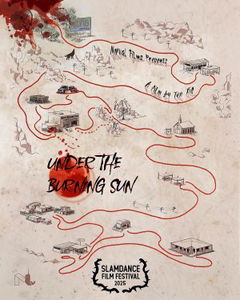 Film Presents
UNDER THE
BURNING SUN
SLAMDANCE
FILM FESTIVAL
2025